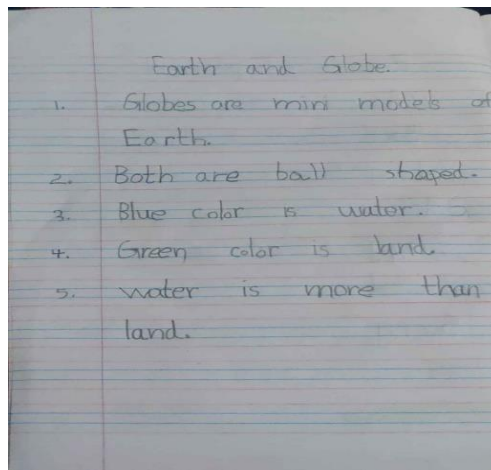 Earth and Globe.
1. Globes are mini models of
Earth.
2. Both are ball shaped.
3. Blue color is water.
4. Green color is land.
5. water is more than
land.